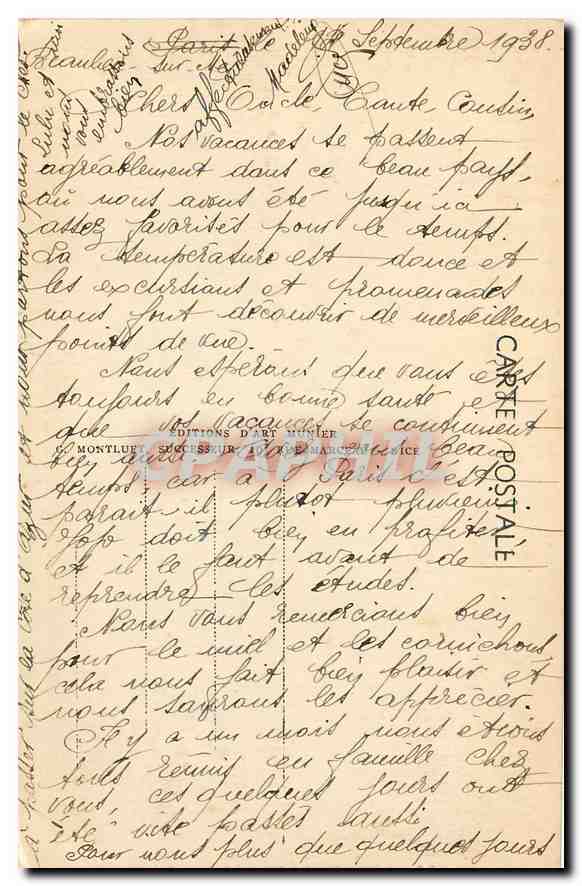 Beaulieu-sur-Mer le Septembre 1938.
Chers Oncle, Tante, Cousin,
Nos vacances se passent
agréablement dans ce beau pays,
où nous avons été jusqu'ici
assez favorisés pour le temps.
La température est douce et
les excursions et promenades
nous font découvrir de merveilleux
points de vue.
Nous espérons que vous êtes
toujours en bonne santé et
que vos vacances se continuent
bien aussi beau
temps car à Paris c'est
paraît-il plutôt pluvieux
Jojo doit bien en profiter
et il le faut avant de
reprendre les études.
Nous vous remercions bien
pour le miel et les cornichons
cela nous fait bien plaisir et
nous saurons les apprécier.
Il y a un mois nous étions
tous réunis en famille chez
vous, ces quelques jours ont
été vite passés aussi
Pour nous plus que quelques jours
à passer sur la Côte d'Azur et nous partirons pour le
vous
embrassons
bien
affectueusement
Madeleine
ÉDITIONS D'ART MUNIER
G. MONTLUET, SUCCESSEUR, 10, RUE MARCEAU, NICE
CARTE POSTALE
CPAPHIL